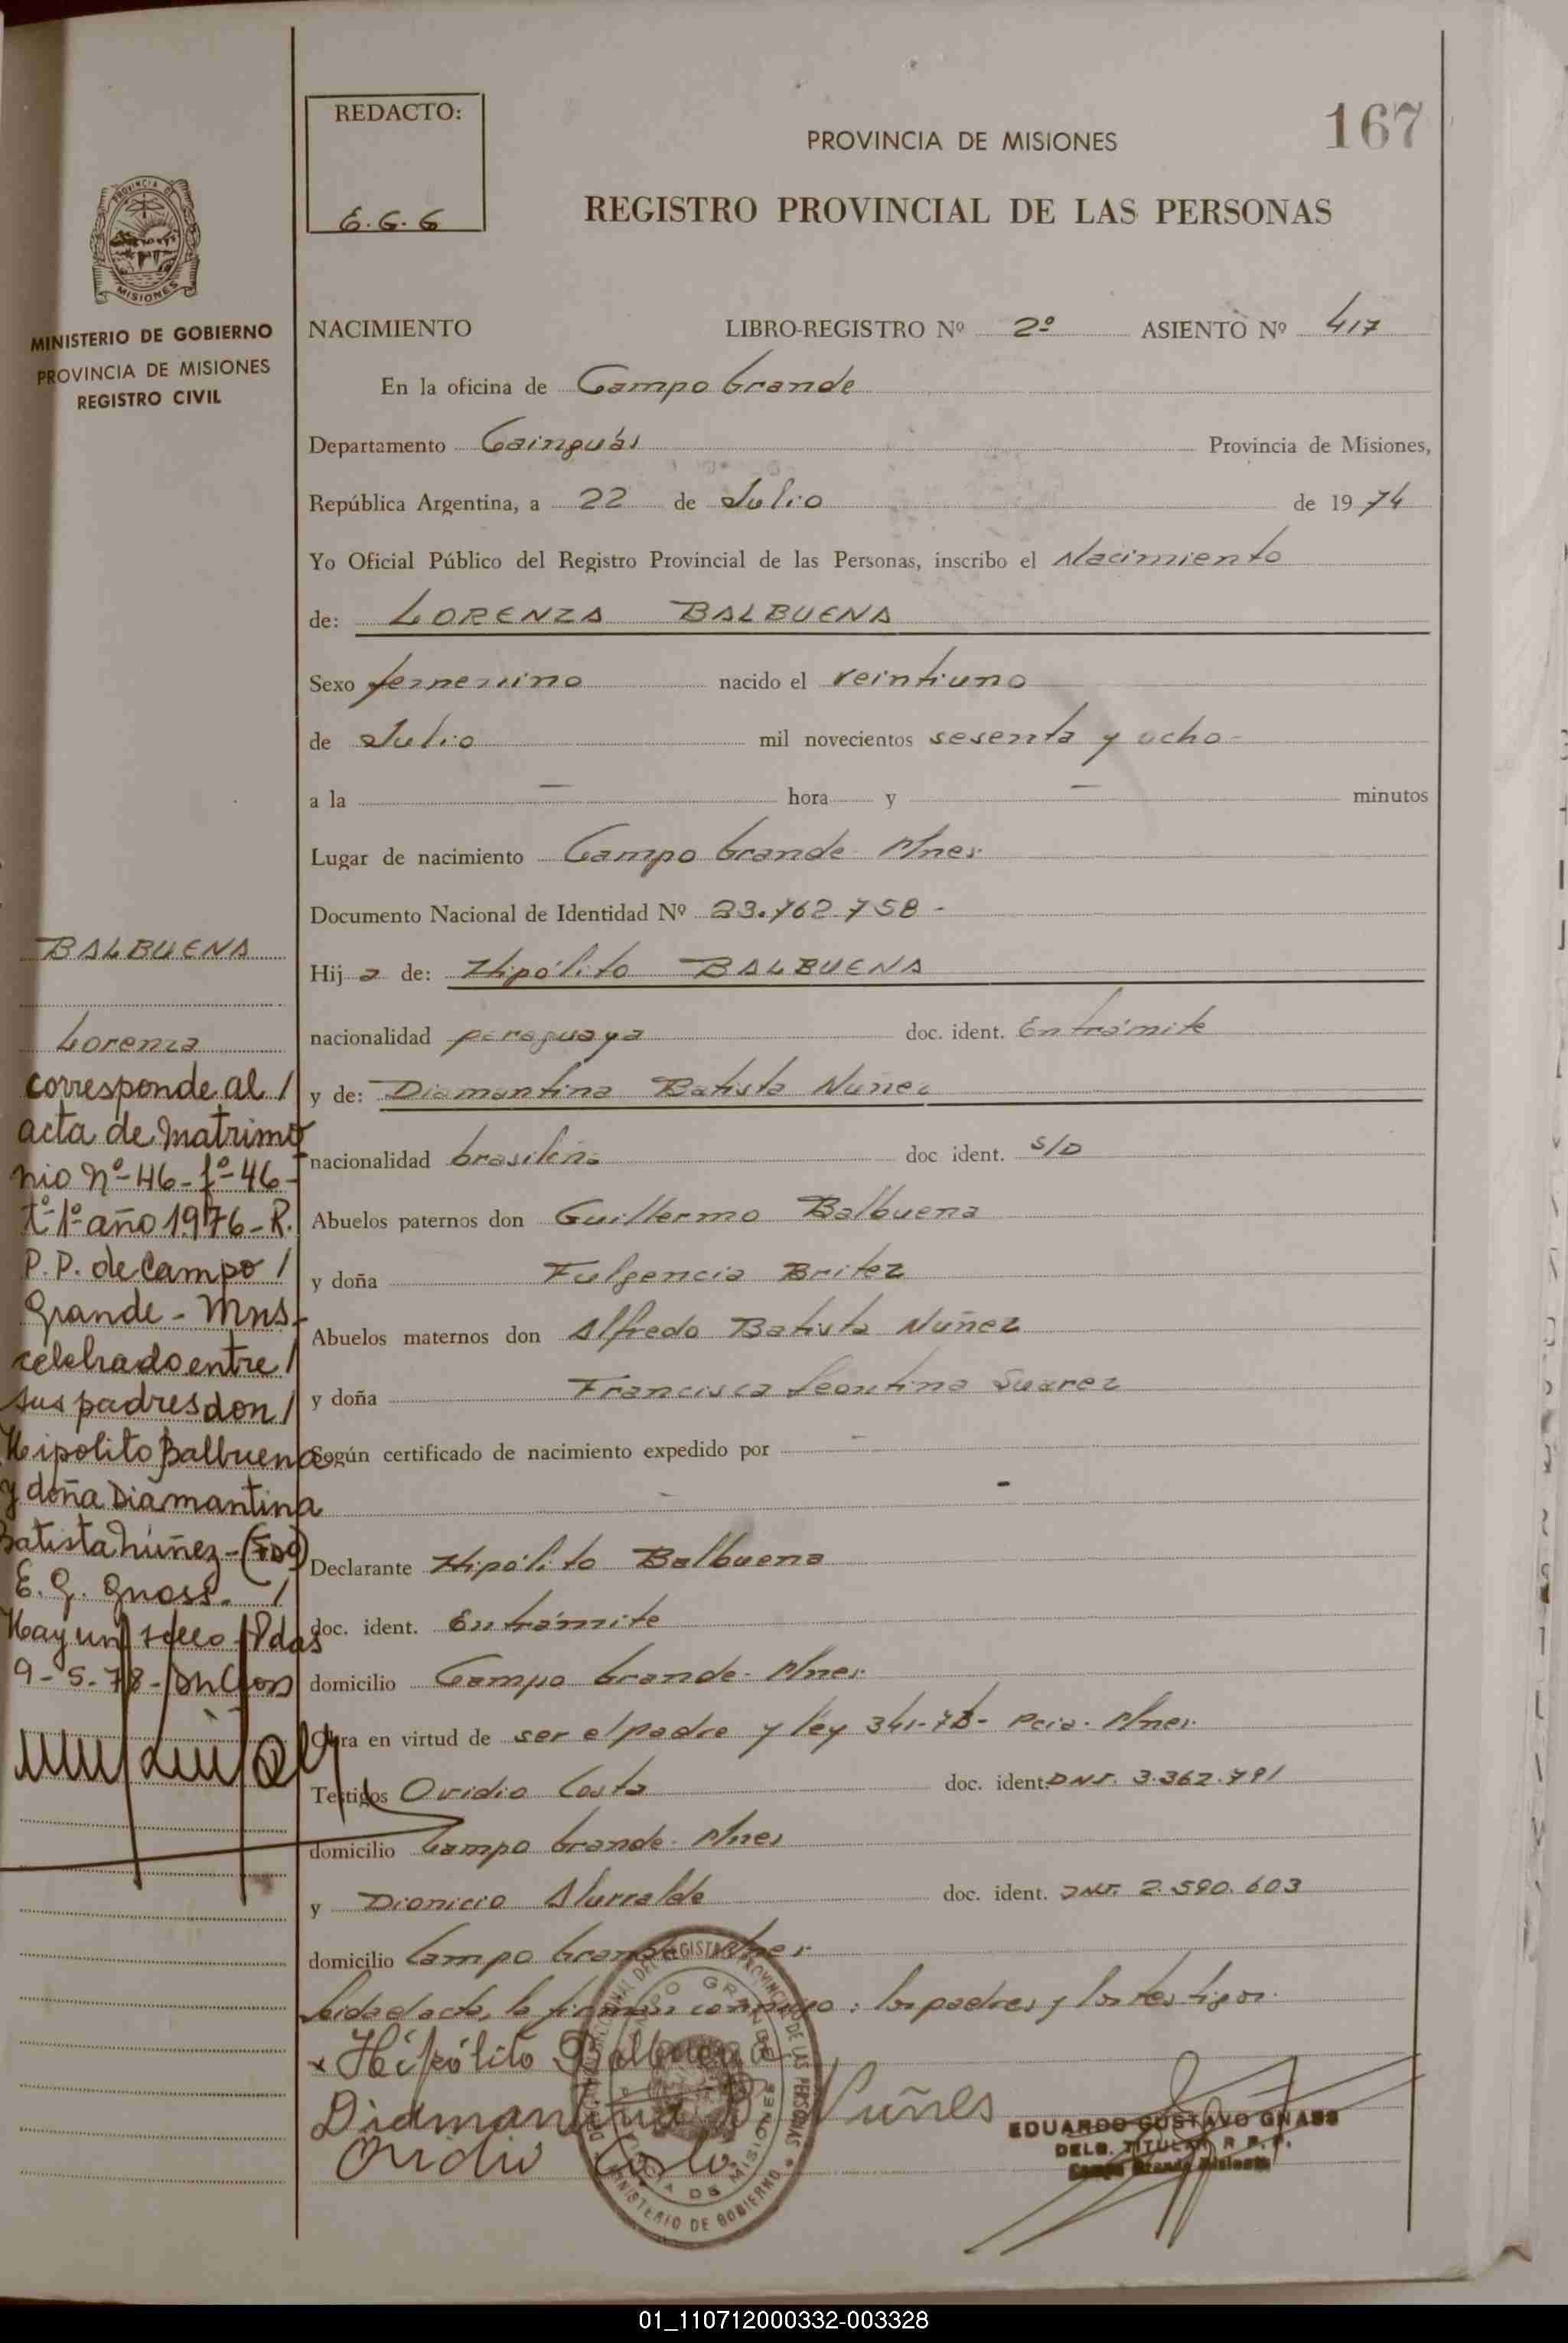 REDACTO:
E.G.G
167
PROVINCIA DE MISIONES
REGISTRO PROVINCIAL DE LAS PERSONAS
PROVINCIA DE
MISIONES
MINISTERIO DE GOBIERNO
PROVINCIA DE MISIONES
REGISTRO CIVIL
NACIMIENTO LIBRO-REGISTRO Nº 2º ASIENTO Nº 417
En la oficina de Campo Grande
Departamento Cainguás Provincia de Misiones,
República Argentina, a 22 de Julio de 1974
Yo Oficial Público del Registro Provincial de las Personas, inscribo el Nacimiento
de: LORENZA BALBUENA
Sexo femenino nacido el veintiuno
de Julio mil novecientos sesenta y ocho-
a la — hora y — minutos
Lugar de nacimiento Campo Grande Mnes.
Documento Nacional de Identidad Nº 23.762.758-
Hija de: Hipólito BALBUENA
nacionalidad paraguaya doc. ident. En trámite
y de: Diamantina Batista Nuñez
nacionalidad brasileña doc ident. S/D
Abuelos paternos don Guillermo Balbuena
y doña Fulgencia Britez
Abuelos maternos don Alfredo Batista Núñez
y doña Francisca Leontina Suarez
Según certificado de nacimiento expedido por —
-
Declarante Hipólito Balbuena
doc. ident. En trámite
domicilio Campo Grande- Mnes.
Obra en virtud de ser el padre y ley 341-73- Pcia. Mnes.
Testigos Ovidio Costa doc. ident. DNI. 3.362.791
domicilio Campo Grande- Mnes
y Dionicio Alurralde doc. ident. DNI. 2.590.603
domicilio Campo Grande Mnes.
Leida el acta, la firman conmigo: los padres y los testigos.
x Hipólito Balbuena
Diamantina B Nuñes
Ovidio Costa
EDUARDO GUSTAVO GNASS
DELG. TITULAR R.P.P.
Campo Grande Misiones
CAMPO GRANDE
PROVINCIA DE MISIONES
MINISTERIO DE GOBIERNO
BALBUENA
Lorenza
corresponde al /
acta de matrimo
nio Nº-46-fº-46-
tº-1º-año 1976-R.
P.P. de Campo /
Grande - Mns.
celebrado entre /
sus padres don /
Hipolito Balbuena
y doña Diamantina
Batista Núñez-(FDO)
E. G. Gnass. /
Hay un sello-Pdas
9-5-78-
01_110712000332-003328